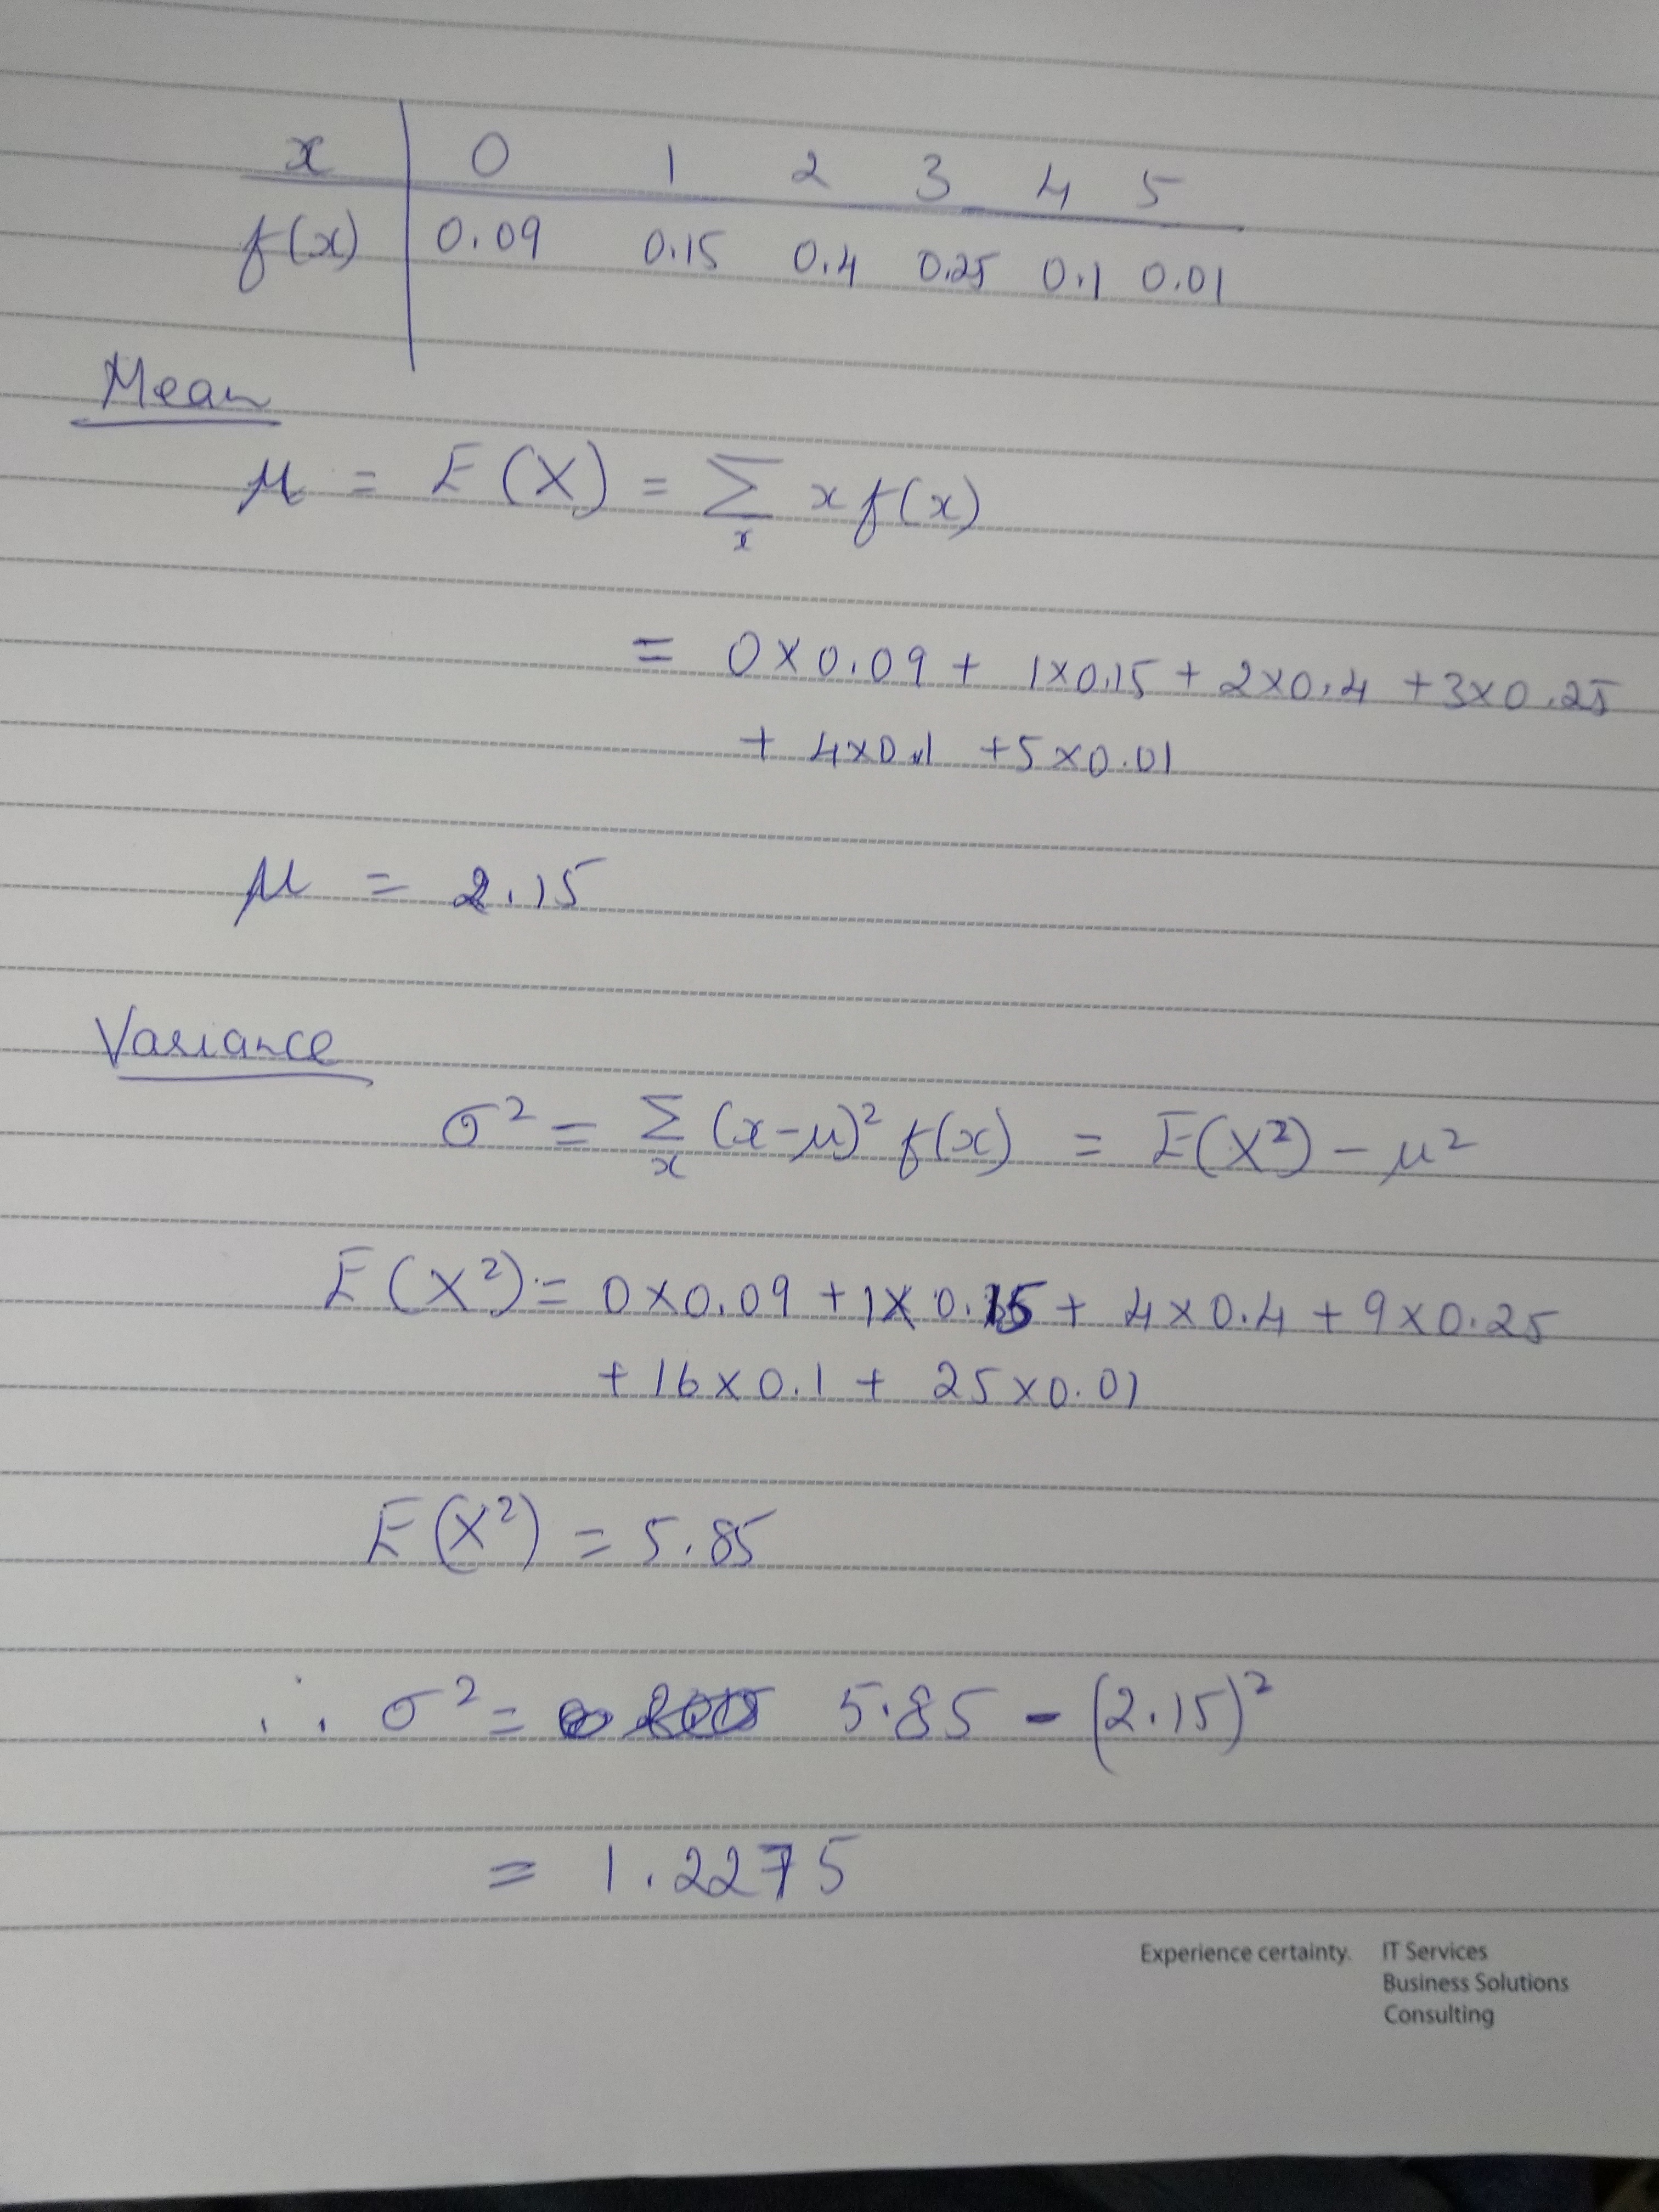 x 0 1 2 3 4 5
f(x) 0.09 0.15 0.4 0.25 0.1 0.01
Mean
μ = E(X) = Σ x f(x)
x
= 0×0.09 + 1×0.15 + 2×0.4 + 3×0.25
+ 4×0.1 + 5×0.01
μ = 2.15
Variance
σ² = Σ (x-μ)² f(x) = E(X²) - μ²
x
E(X²) = 0×0.09 + 1×0.15 + 4×0.4 + 9×0.25
+ 16×0.1 + 25×0.01
E(X²) = 5.85
∴ σ² = 5.85 - (2.15)²
= 1.2275
Experience certainty. IT Services
Business Solutions
Consulting